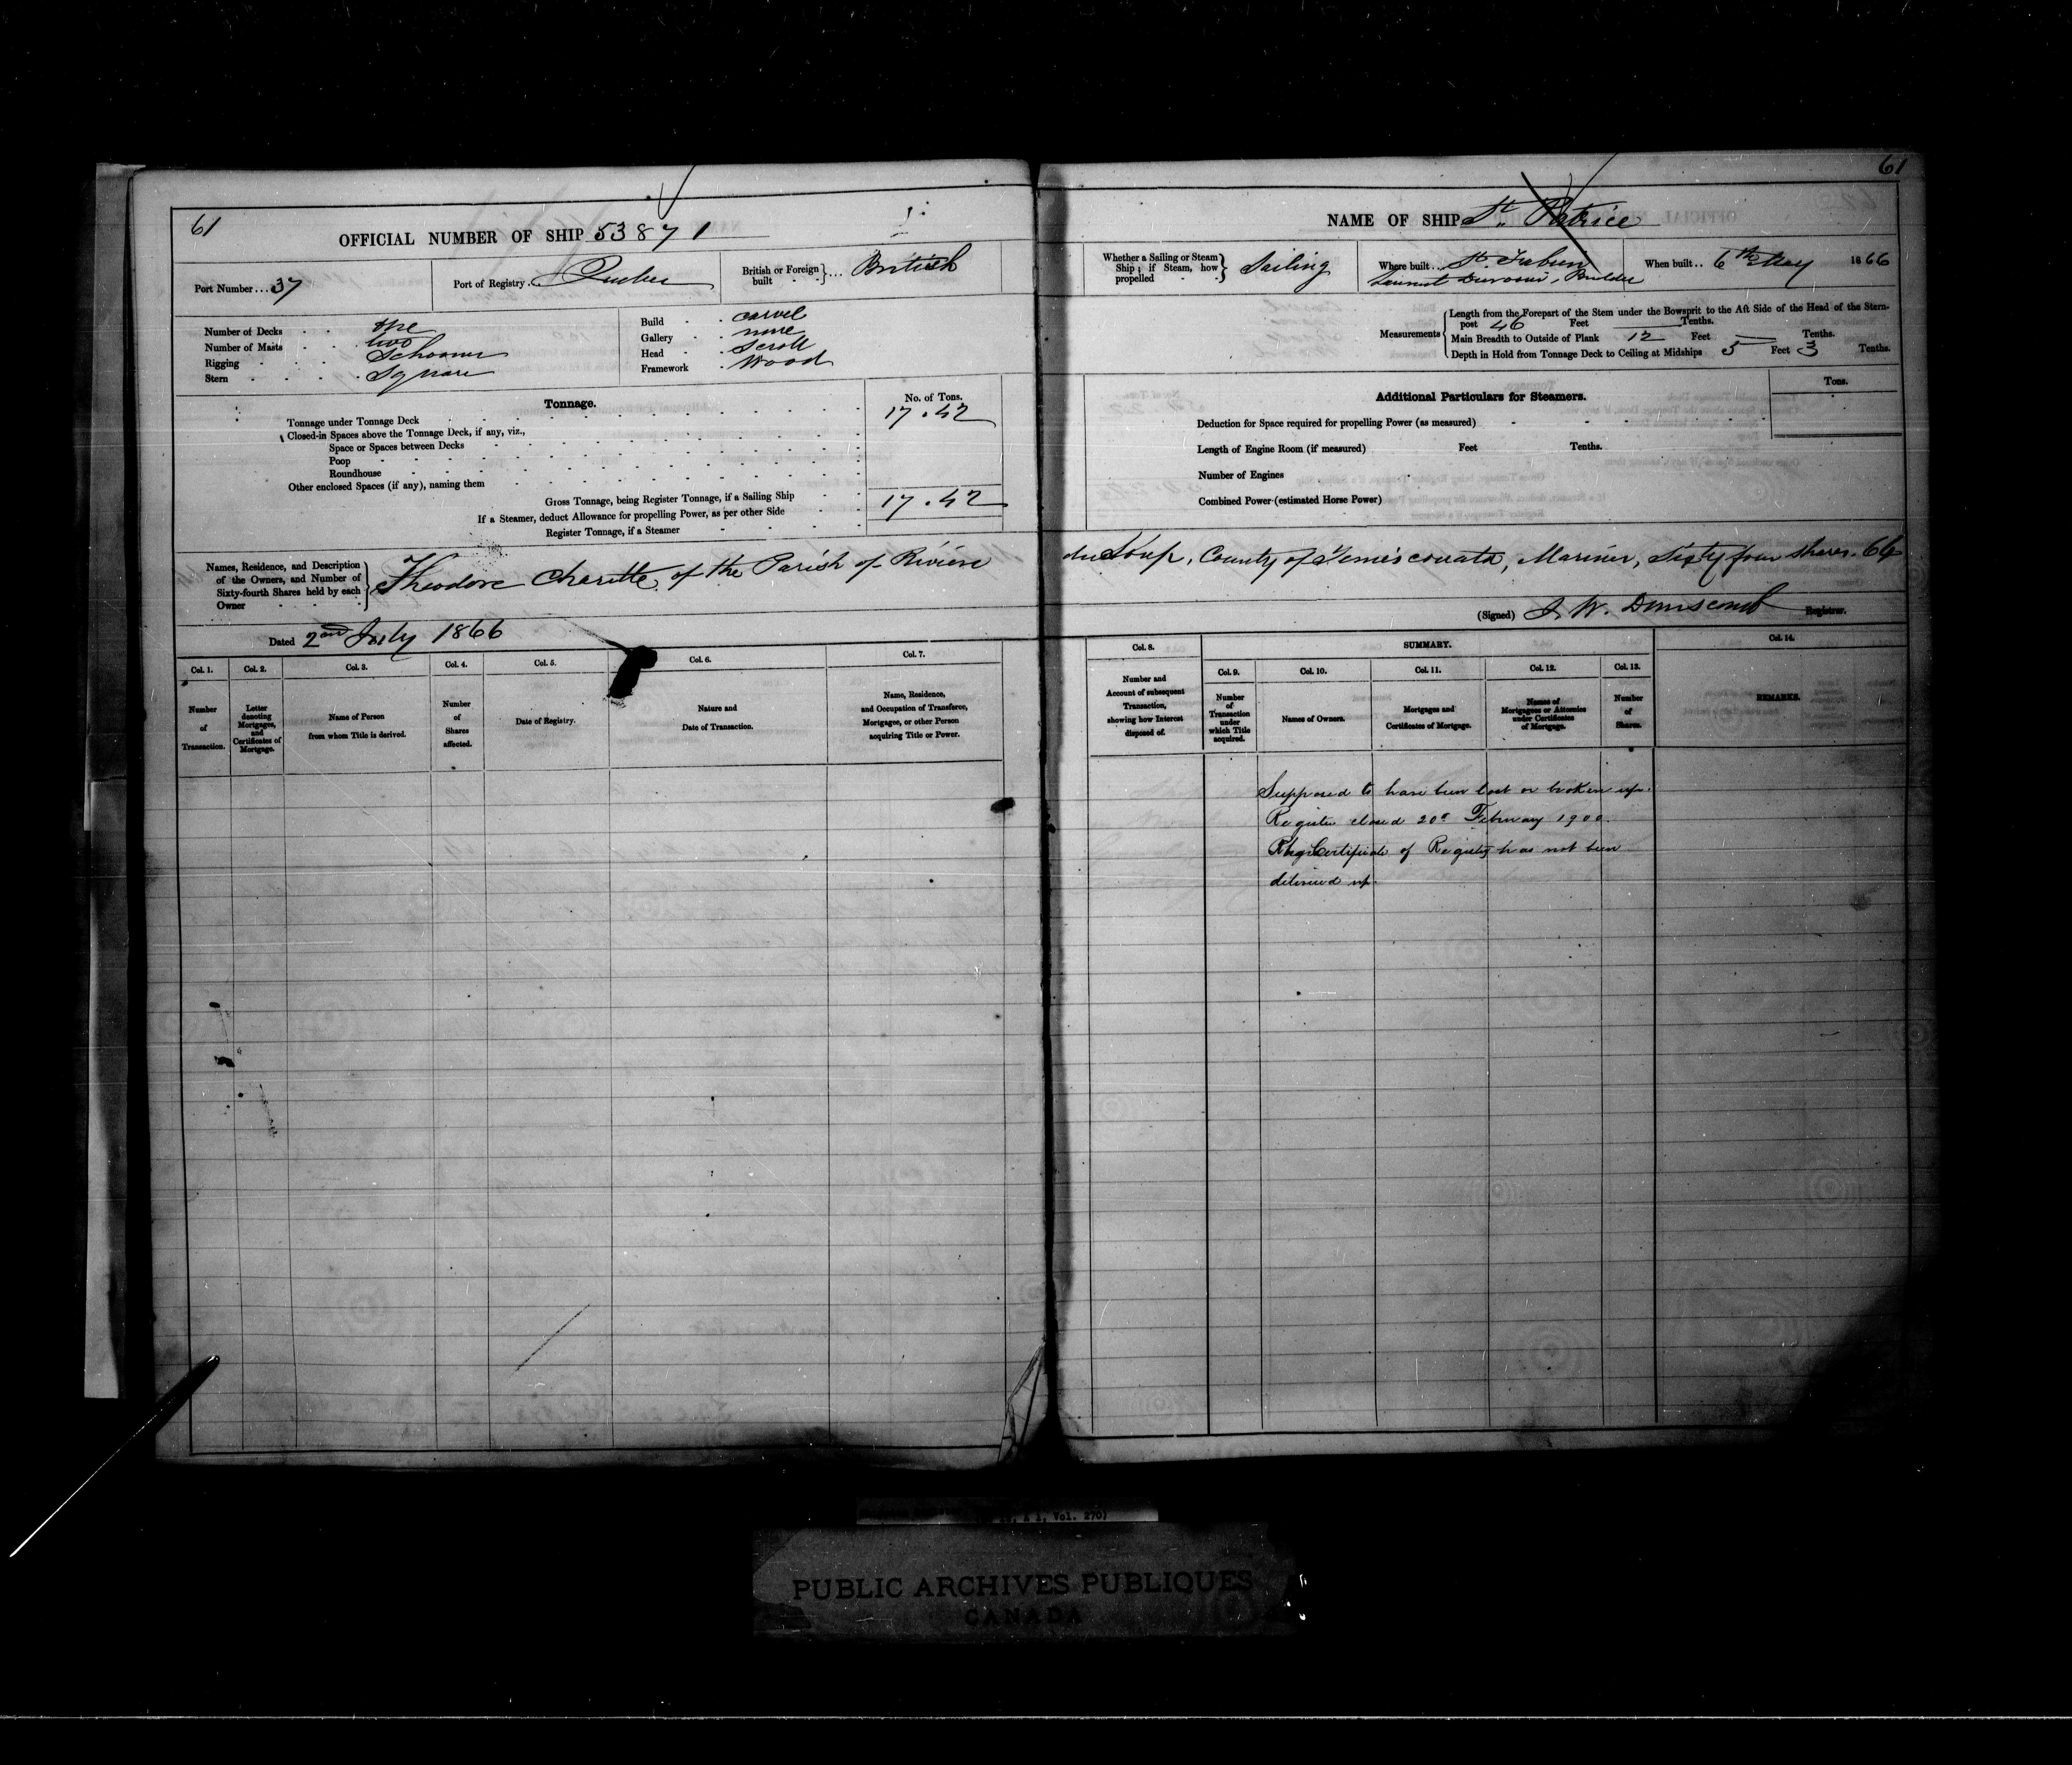 61
OFFICIAL NUMBER OF SHIP 53871
Port Number... 37
Port of Registry. Quebec
British or Foreign built ... British
Number of Decks one
Number of Masts two
Rigging Schooner
Stern Square
Build carvel
Gallery none
Head Scroll
Framework Wood
Tonnage.
No. of Tons.
Tonnage under Tonnage Deck 17.42
Closed-in Spaces above the Tonnage Deck, if any, viz.,
Space or Spaces between Decks
Poop
Roundhouse
Other enclosed Spaces (if any), naming them
Gross Tonnage, being Register Tonnage, if a Sailing Ship 17.42
If a Steamer, deduct Allowance for propelling Power, as per other Side
Register Tonnage, if a Steamer
Names, Residence, and Description
of the Owners, and Number of
Sixty-fourth Shares held by each
Owner
Theodore Charette, of the Parish of Rivière
Dated 2nd July 1866
Col. 1.
Number
of
Transaction.
Col. 2.
Letter
denoting
Mortgages,
and
Certificates of
Mortgage.
Col. 3.
Name of Person
from whom Title is derived.
Col. 4.
Number
of
Shares
affected.
Col. 5.
Date of Registry.
Col. 6.
Nature and
Date of Transaction.
Col. 7.
Name, Residence,
and Occupation of Transferee,
Mortgagee, or other Person
acquiring Title or Power.
61
NAME OF SHIP St. Patrice
Whether a Sailing or Steam
Ship; if Steam, how
propelled
Sailing
Where built.. St. Fabien
Builder
When built.. 6th May 1866
Measurements
Length from the Forepart of the Stem under the Bowsprit to the Aft Side of the Head of the Stern-
post 46 Feet — Tenths.
Main Breadth to Outside of Plank 12 Feet — Tenths.
Depth in Hold from Tonnage Deck to Ceiling at Midships 5 Feet 3 Tenths.
Additional Particulars for Steamers.
Tons.
Deduction for Space required for propelling Power (as measured)
Length of Engine Room (if measured) Feet Tenths.
Number of Engines
Combined Power (estimated Horse Power)
du Loup, County of Temiscouata, Mariner, Sixty four shares. 64
(Signed) J. W. Dunscomb Registrar.
Col. 8.
Number and
Account of subsequent
Transaction,
showing how Interest
disposed of.
SUMMARY.
Col. 9.
Number
of
Transaction
under
which Title
acquired.
Col. 10.
Names of Owners.
Col. 11.
Mortgages and
Certificates of Mortgage.
Col. 12.
Names of
Mortgagees or Attornies
under Certificates
of Mortgage.
Col. 13.
Number
of
Shares.
Col. 14.
REMARKS.
Supposed to have been lost or broken up.
Register closed 20th February 1900.
Certificate of Registry has not been
delivered up.
Vol. 270)
PUBLIC ARCHIVES PUBLIQUES
CANADA